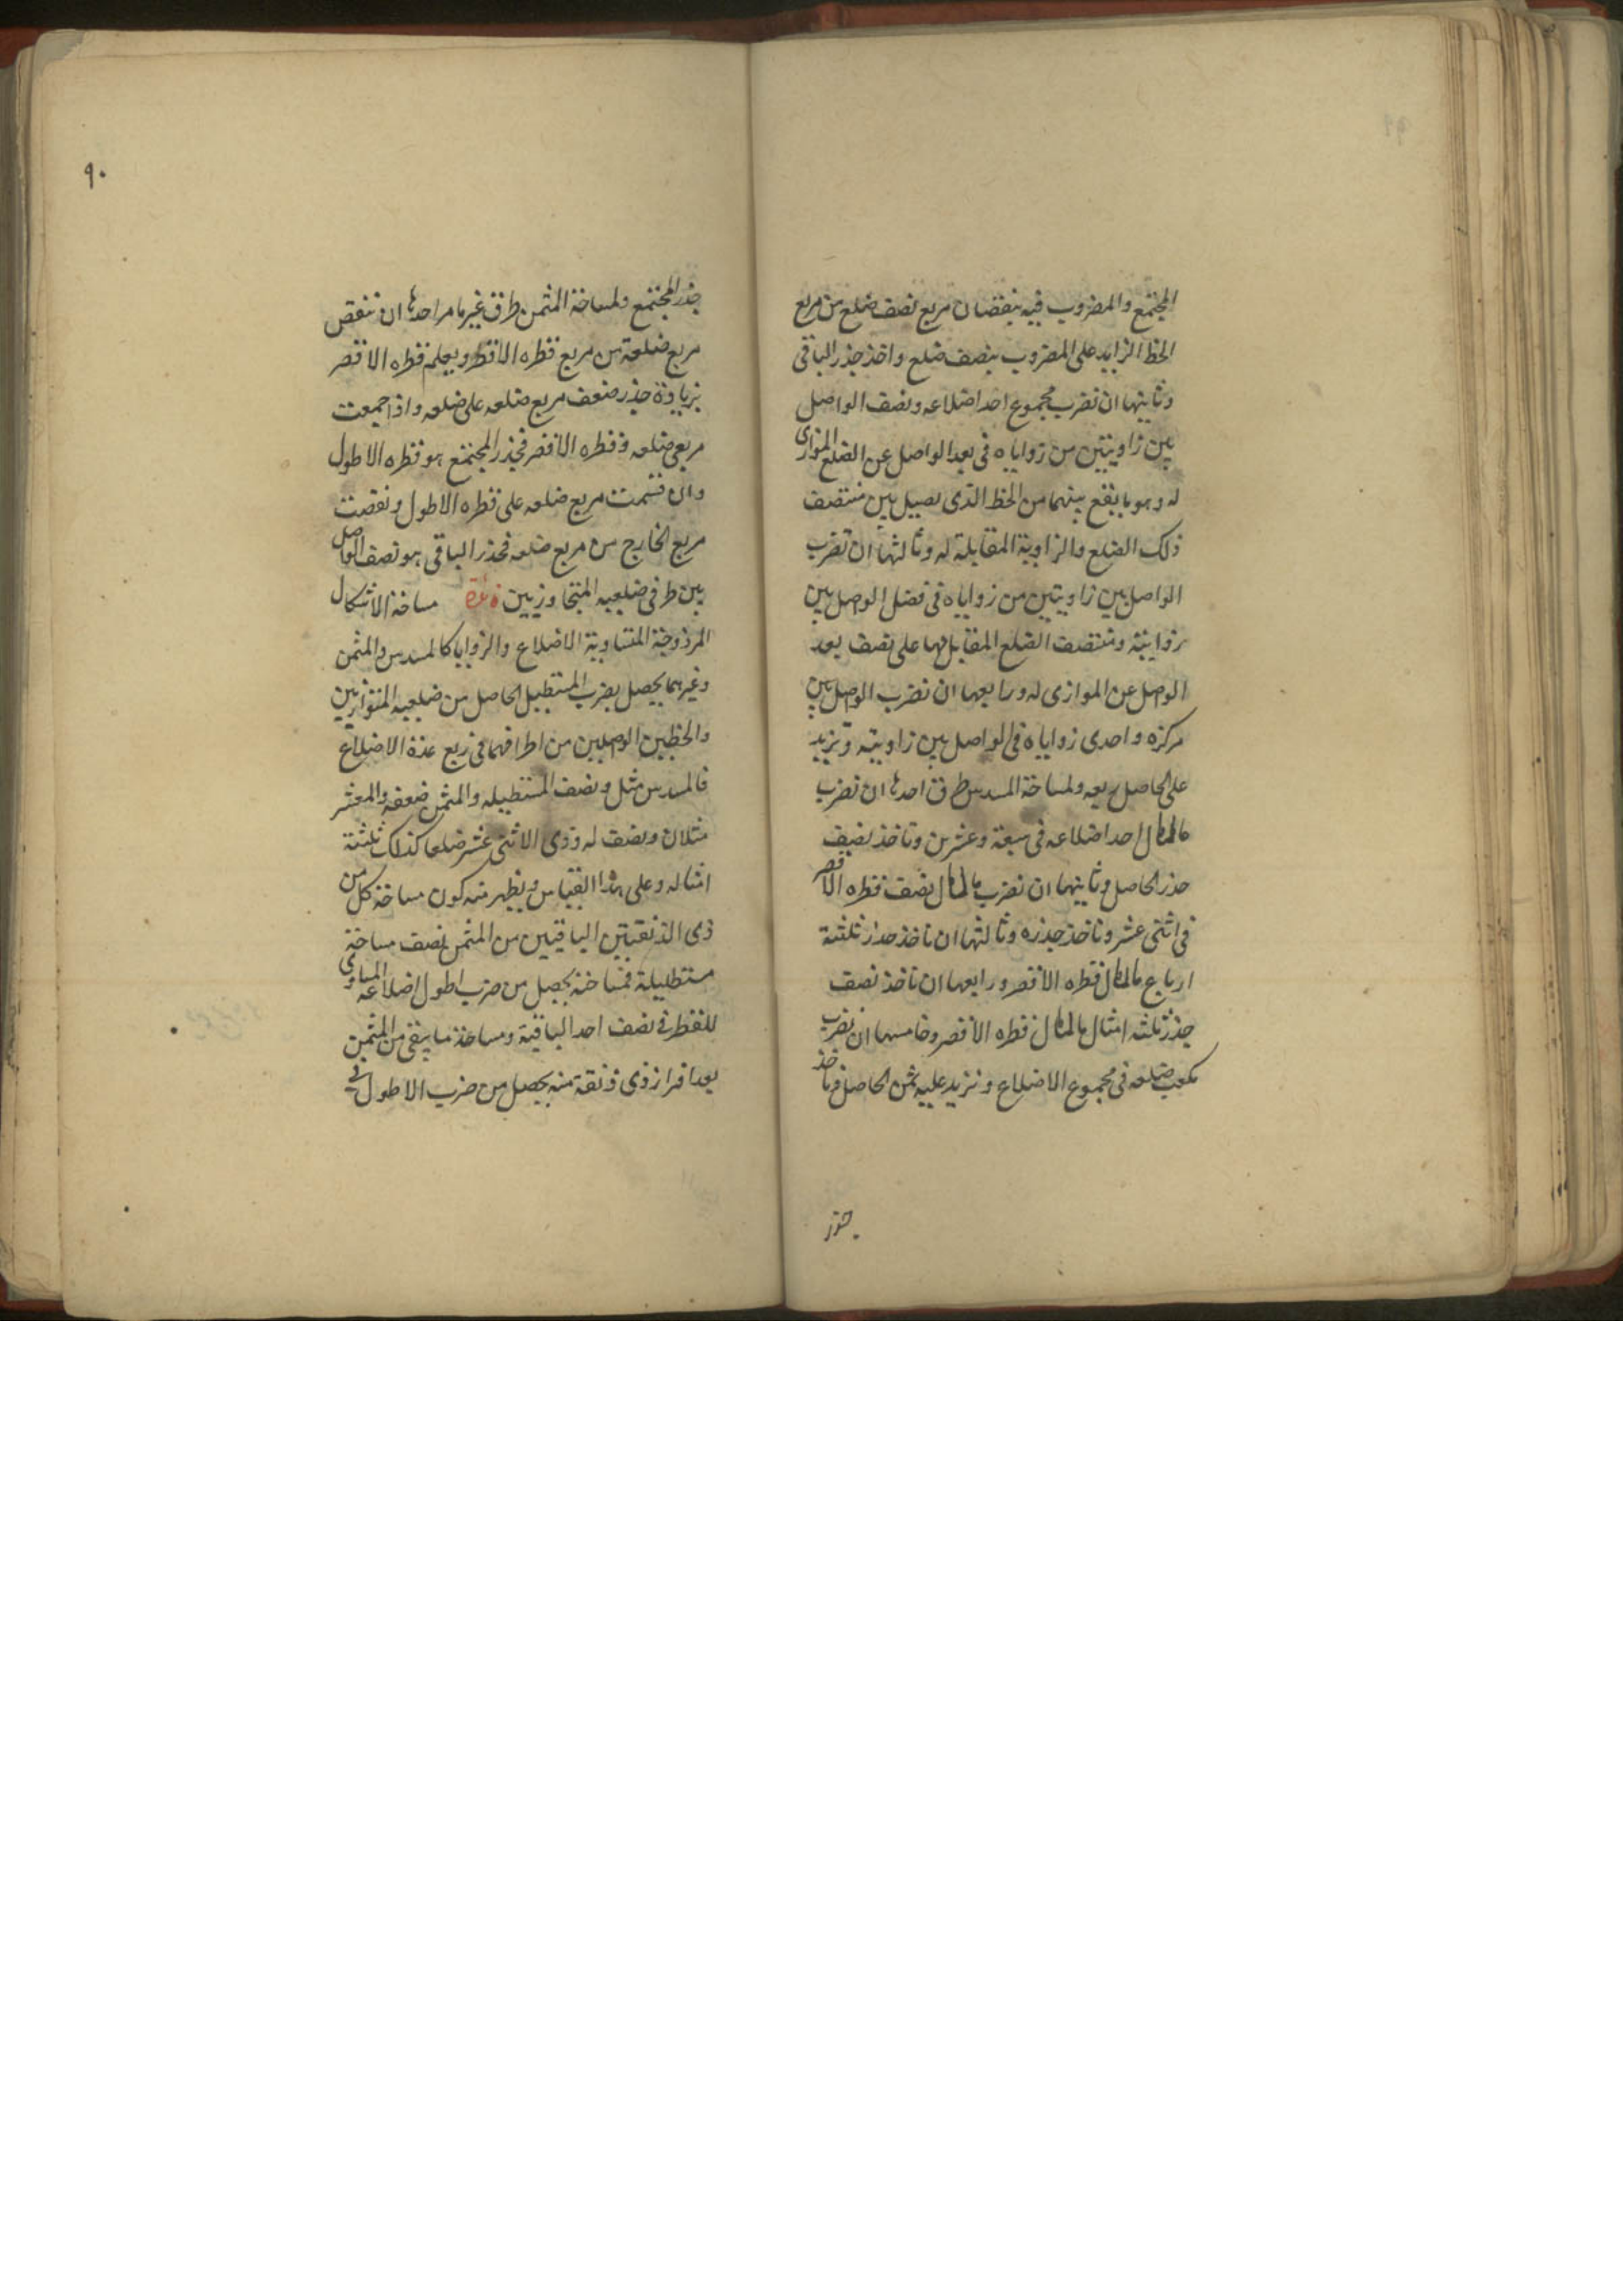 المجتمع والمضروب فيه بنقصان مربع نصف ضلع من مربع
الخط الزايد على المضروب بنصف ضلع واخذ جذر الباقى
وثانيها ان تضرب مجموع احد اضلاعه ونصف الواصل
بين زاويتين من زواياه فى بعد الواصل عن الضلع الموازى
له وهو ما يقع بينهما من الخط الذى يصل بين منتصف
ذلك الضلع والزاوية المقابلة له وثالثها ان تضرب
الواصل بين زاويتين من زواياه فى فضل الوصل بين
زوايته ومنتصف الضلع المقابل لها على نصف بعد
الوصل عن الموازى له ورابعها ان تضرب الوصل بين
مركزه واحدى زواياه فى الواصل بين زاويتيه وتزيد
على الحاصل ربعه ولمساحة المسدس طرق احدها ان تضرب
مال مال احد اضلاعه فى سبعة وعشرين وتاخذ نصف
جذر الحاصل وثانيها ان تضرب مال مال نصف قطره الاقصر
فى اثنى عشر وتاخذ جذره وثالثها ان تاخذ جذر ثلثة
ارباع مال مال قطره الاقصر ورابعها ان تاخذ نصف
جذر ثلثه امثال مال مال قطره الاقصر وخامسها ان تضرب
مكعب ضلعه فى مجموع الاضلاع وتزيد عليه ثمن الحاصل وتاخذ
جذر
٩٠
جذر المجتمع ولمساحة المثمن طرق غير ما مر احدها ان تنقص
مربع ضلعه من مربع قطره الاقصر ويعلم قطره الاقصر
بزيادة جذر ضعف مربع ضلعه على ضلعه واذا جمعت
مربعى ضلعه وقطره الاقصر فجذر المجتمع هو قطره الاطول
وان قسمت مربع ضلعه على قطره الاطول ونقصت
مربع الخارج من مربع ضلعه فجذر الباقى هو نصف الواصل
بين طرفى ضلعيه المتجاوزيين مساحة الاشكال
المزدوجة المتساوية الاضلاع والزوايا كالمسدس والمثمن
وغيرهما يحصل بضرب المستطيل الحاصل من ضلعيه المتوازيين
والخطين الوصلين من اطرافهما فى ربع عدة الاضلاع
فالمسدس مثل ونصف المستطيله والمثمن ضعفه والمعشر
مثلان ونصف له وذى الاثنى عشر ضلعا كذلك ثلثة
امثاله وعلى هذا القياس ويظهر منه كون مساحة كل من
ذى الذنقتين الباقيين من المثمن نصف مساحة
مستطيلة فمساحته يحصل من ضرب اطول اضلاعه المساوى
للقطر فى نصف احد الباقية ومساحة ما يبقى من المثمن
بعد افراز ذى ذنقة منه يحصل من ضرب الاطول فى